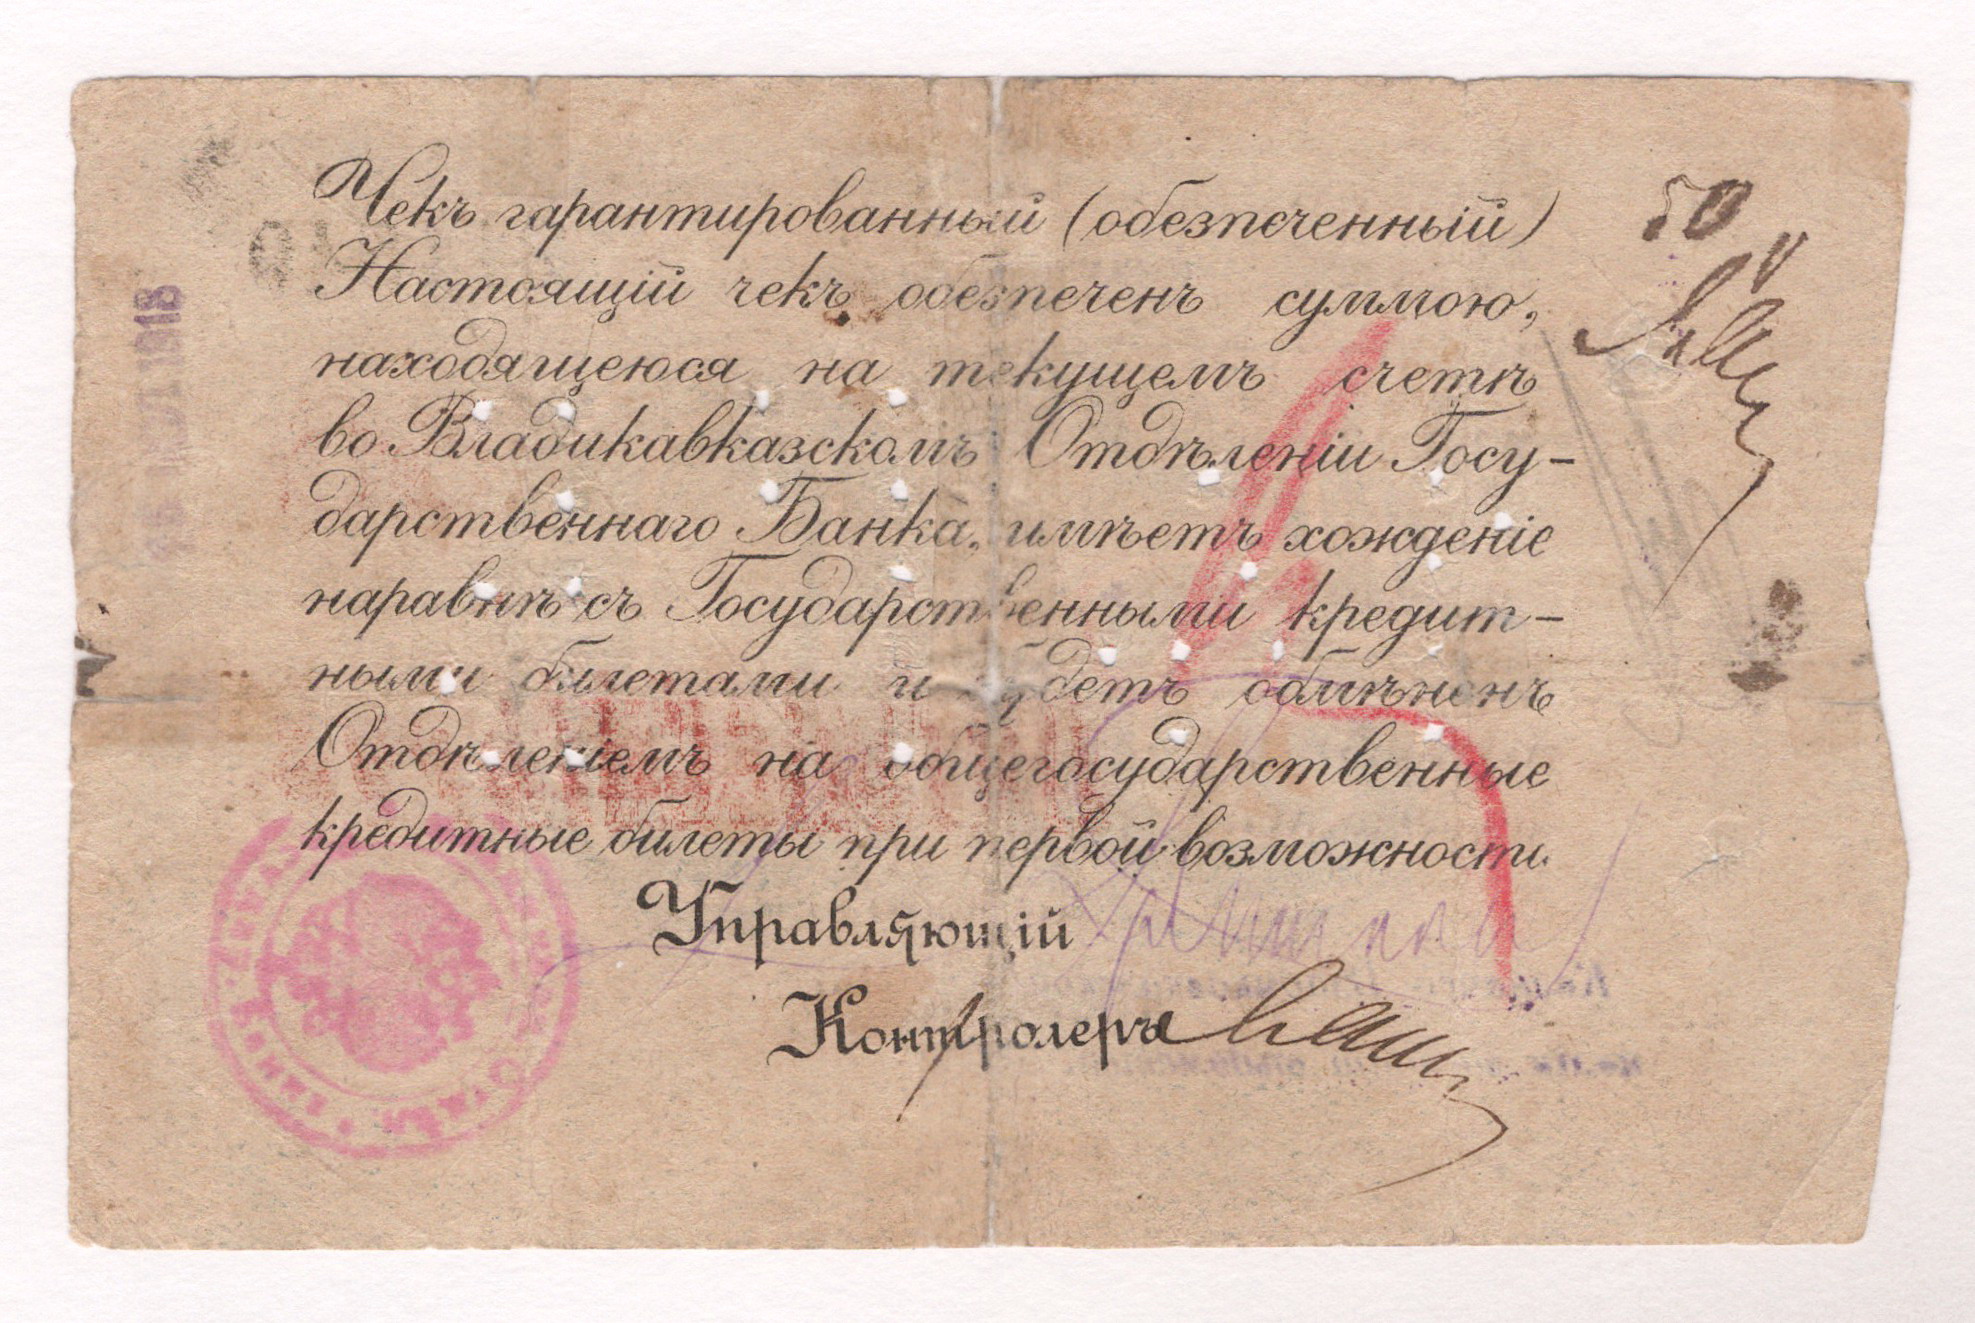 Чекъ гарантированный (обезпеченный)
Настоящій чекъ обезпеченъ суммою,
находящеюся на текущемъ счетѣ
во Владикавказскомъ Отдѣленіи Госу-
дарственнаго Банка, имѣетъ хожденіе
наравнѣ съ Государственными кредит-
ными билетами и будетъ обмѣненъ
Отдѣленіемъ на общегосударственные
кредитные билеты при первой возможности.
Управляющій
Контролеръ
50
1918